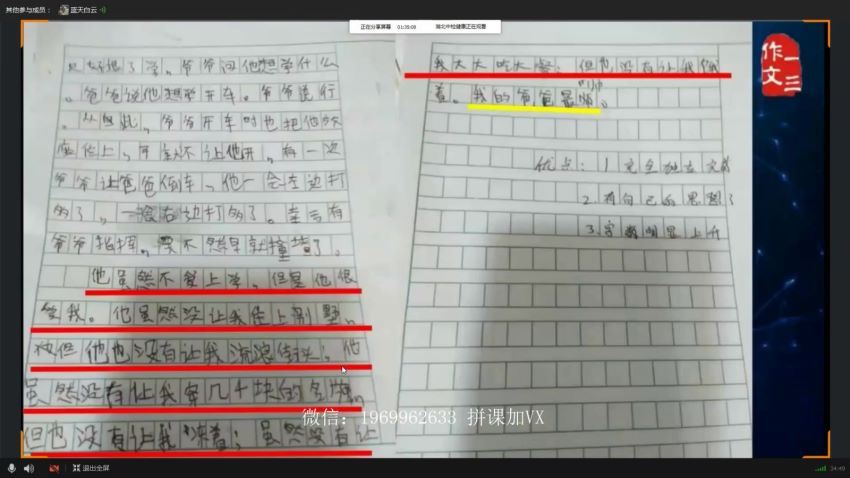 其他参与成员：
蓝天白云
正在分享屏幕 01:35:00
只好退了学。爷爷问他想学什么
，爸爸说他想学开车。爷爷说行
。从此，爷爷开车时也把他放
座位上，可就不让他开，有一次
爷爷让爸爸倒车，他一会左边打
多了，一会右边打多了。幸亏有
爷爷指挥，要不然早就撞墙了。
他虽然不爱上学，但是他很
爱我。他虽然没让我住上别墅，
但他也没有让我流浪街头；他
虽然没有让我穿几千块的名牌，
但也没有让我冻着；虽然没有让
我大大吃大餐；但也没有让我饿
着。我的爸爸最帅。
优点：1 完全独立完成
2.有自己的思想了
3.字数明显上升
作文
一三
微信：1969962633 拼课加VX
退出全屏
34:49